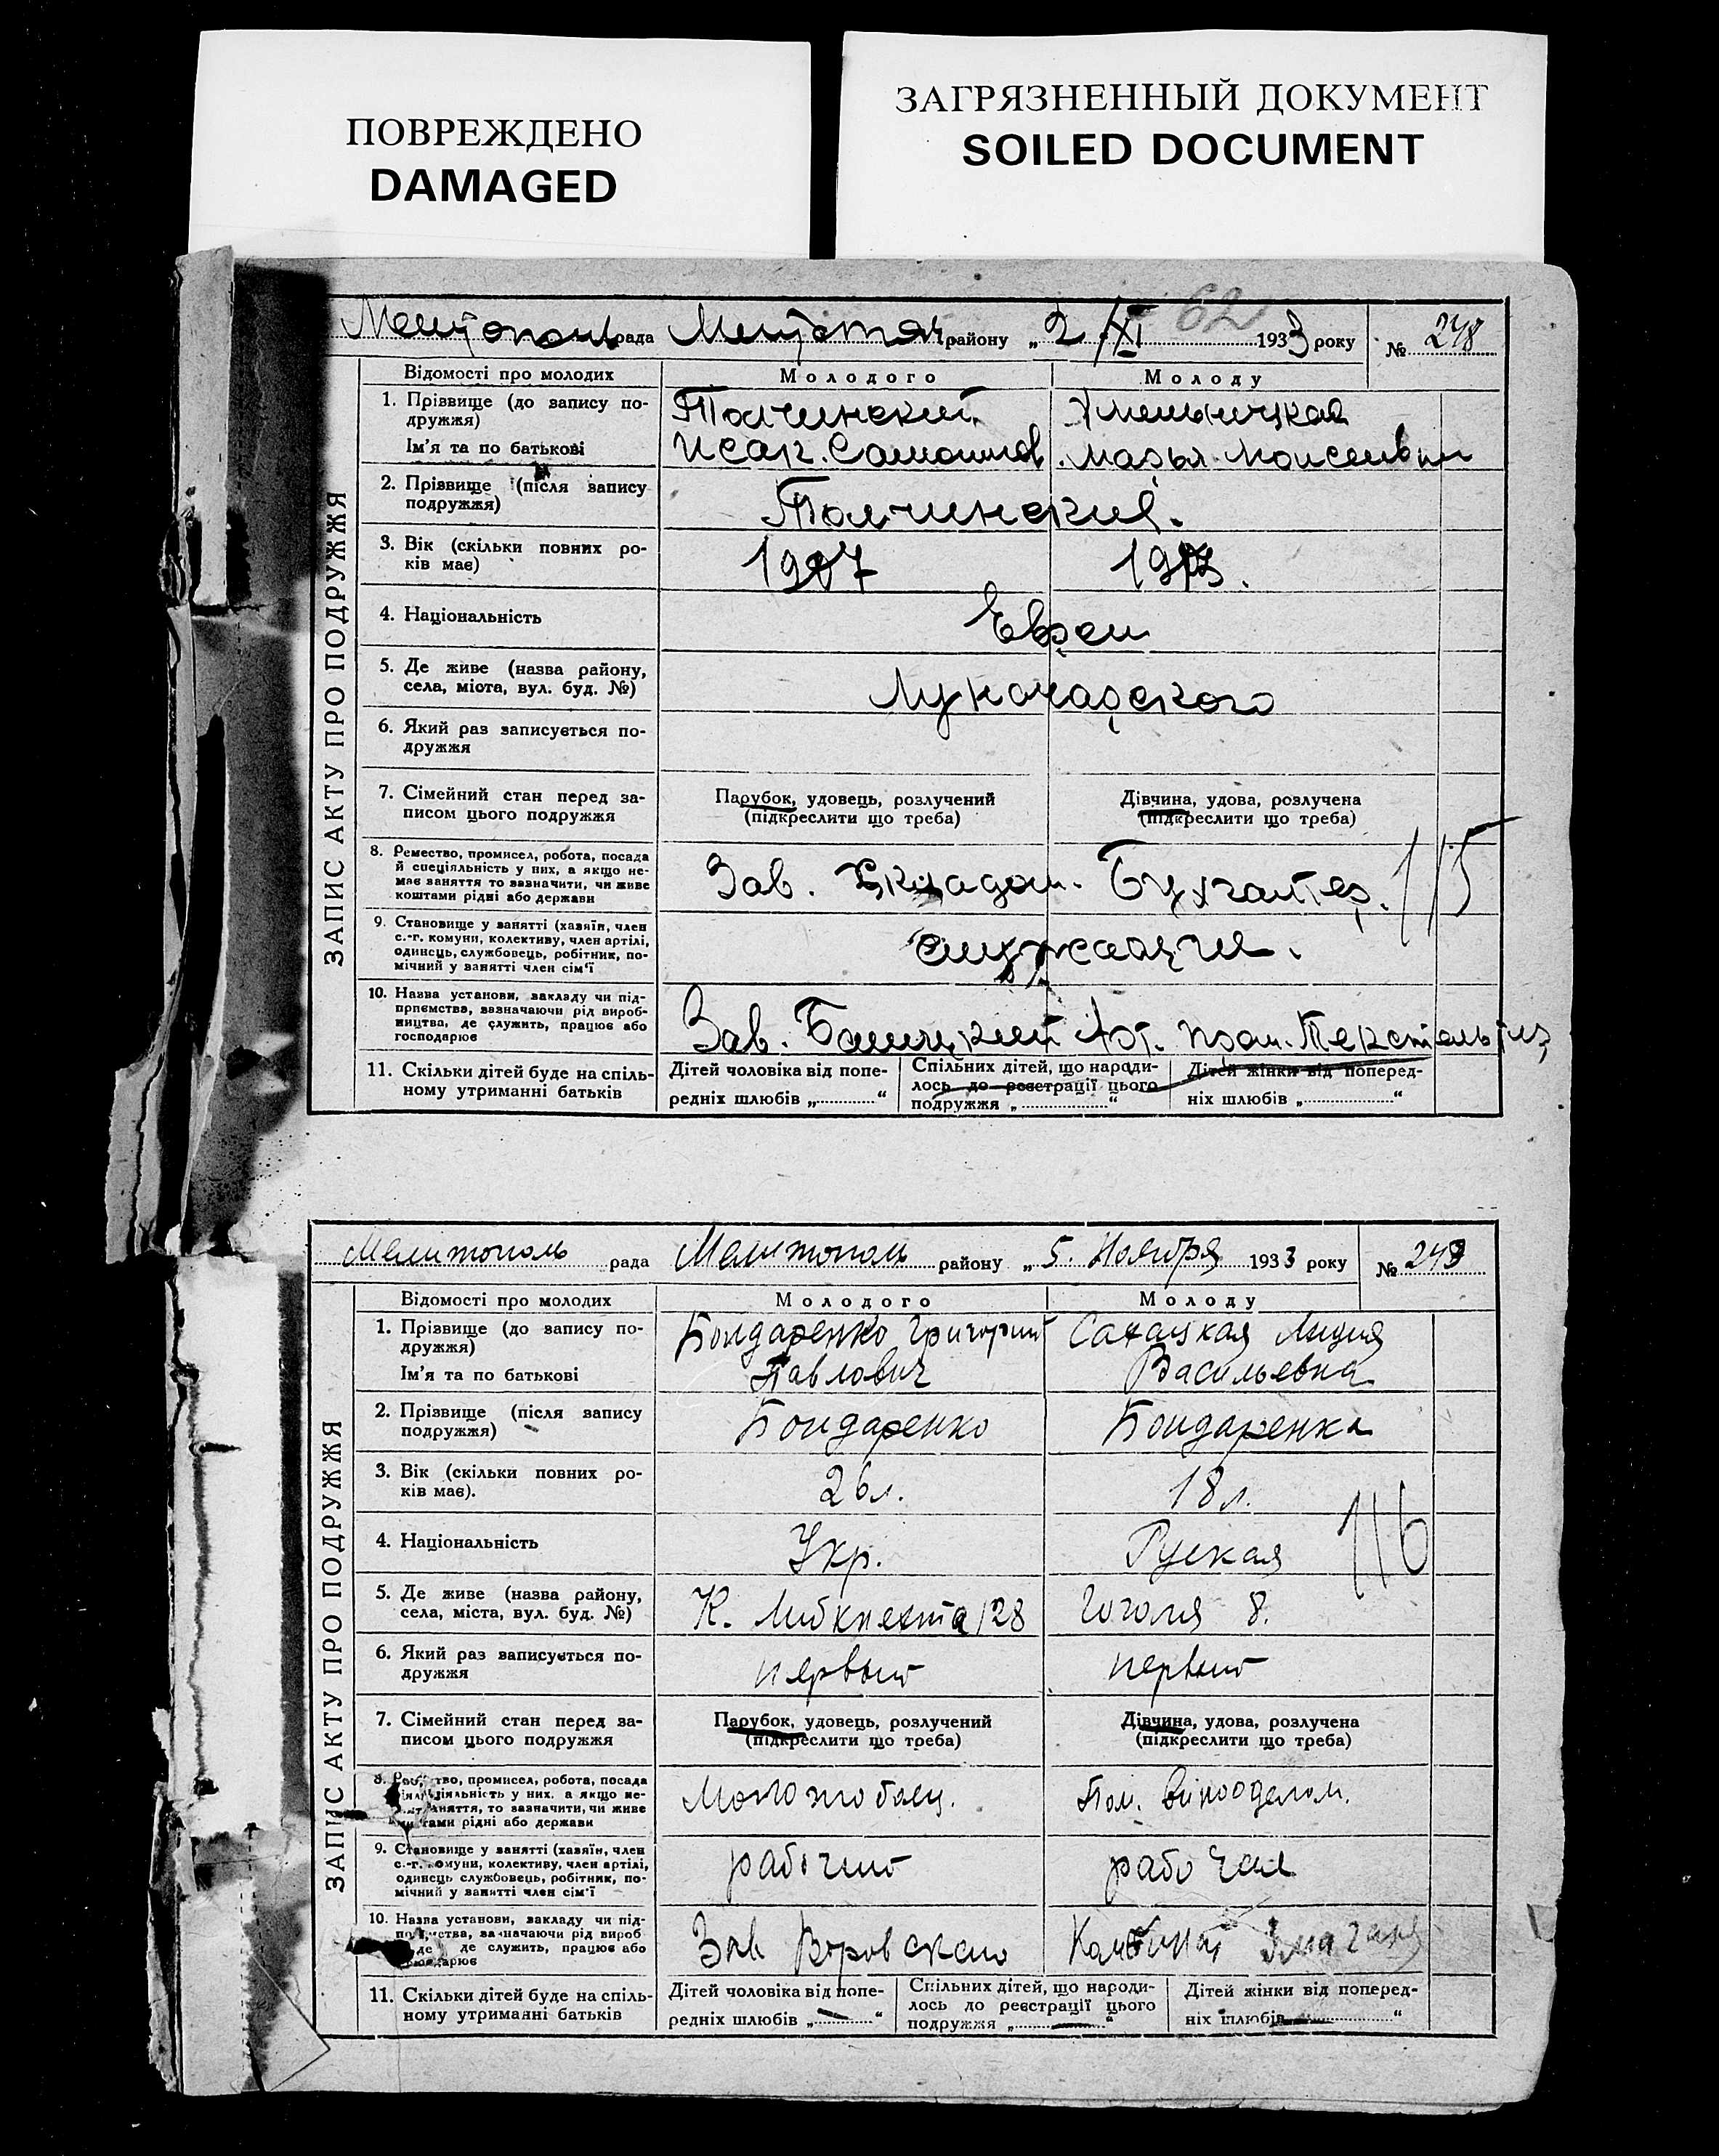 ПОВРЕЖДЕНО
DAMAGED
ЗАГРЯЗНЕННЫЙ ДОКУМЕНТ
SOILED DOCUMENT
62
рада району „ 2 /XI 1933 року № 248
ЗАПИС АКТУ ПРО ПОДРУЖЖЯ
Відомості про молодих
Молодого
Молоду
1. Прізвище (до запису по-
дружжя)
Ім'я та по батькові
Толчинский
Исак. Самойлов.
Хмельницкая
Марья Моисеевн
2. Прізвище (після запису
подружжя)
Толчинский.
3. Вік (скільки повних ро-
ків має)
1907
4. Національність
Евреи
5. Де живе (назва району,
села, міста, вул. буд. №)
Луначарского
6. Який раз записується по-
дружжя
7. Сімейний стан перед за-
писом цього подружжя
Парубок, удовець, розлучений
(підкреслити що треба)
Дівчина, удова, розлучена
(підкреслити що треба)
8. Ремество, промисел, робота, посада
й спеціяльність у них, а якщо не-
має заняття то зазначити, чи живе
коштами рідні або держави
Зав. Складом.
Бухгалтер.
115
9. Становище у занятті (хазяїн, член
с.-г. комуни, колективу, член артілі,
одинець, службовець, робітник, по-
мічний у занятті член сім'ї
служащие.
10. Назва установи, закладу чи під-
приємства, зазначаючи рід вироб-
ництва, де служить, працює або
господарює
Зав. Арт. пром.
11. Скільки дітей буде на спіль-
ному утриманні батьків
Дітей чоловіка від попе-
редніх шлюбів „ “
Спільних дітей, що народи-
лось до реєстрації цього
подружжя „ “
Дітей жінки від поперед-
ніх шлюбів „ “
Мелитополь рада Мелитополь району „ 5. Ноября 1933 року № 249
ЗАПИС АКТУ ПРО ПОДРУЖЖЯ
Відомості про молодих
Молодого
Молоду
1. Прізвище (до запису по-
дружжя)
Ім'я та по батькові
Бондаренко Григорий
Павлович
Лидия
Васильевна
2. Прізвище (після запису
подружжя)
Бондаренко
Бондаренка
3. Вік (скільки повних ро-
ків має).
26 л.
18 л.
4. Національність
Укр.
Руская
116
5. Де живе (назва району,
села, міста, вул. буд. №)
К. Либкнехта 128
Гоголя 8.
6. Який раз записується по-
дружжя
первый
первый
7. Сімейний стан перед за-
писом цього подружжя
Парубок, удовець, розлучений
(підкреслити що треба)
Дівчина, удова, розлучена
(підкреслити що треба)
промисел, робота, посада
у них, а якщо не-
заняття, то зазначити, чи живе
рідні або держави
Молотобоец.
Пом. виноделом.
9. Становище у занятті (хазяїн, член
с.-г. комуни, колективу, член артілі,
одинець службовець, робітник, по-
мічний у занятті член сім'ї
рабочий
рабочая
10. Назва установи, закладу чи під-
зазначаючи рід вироб
де служить, працює або
Зав Воровского
Комбинат
11. Скільки дітей буде на спіль-
ному утриманні батьків
Дітей чоловіка від попе-
редніх шлюбів „ “
Спільних дітей, що народи-
лось до реєстрації цього
подружжя „ “
Дітей жінки від поперед-
ніх шлюбів „ “